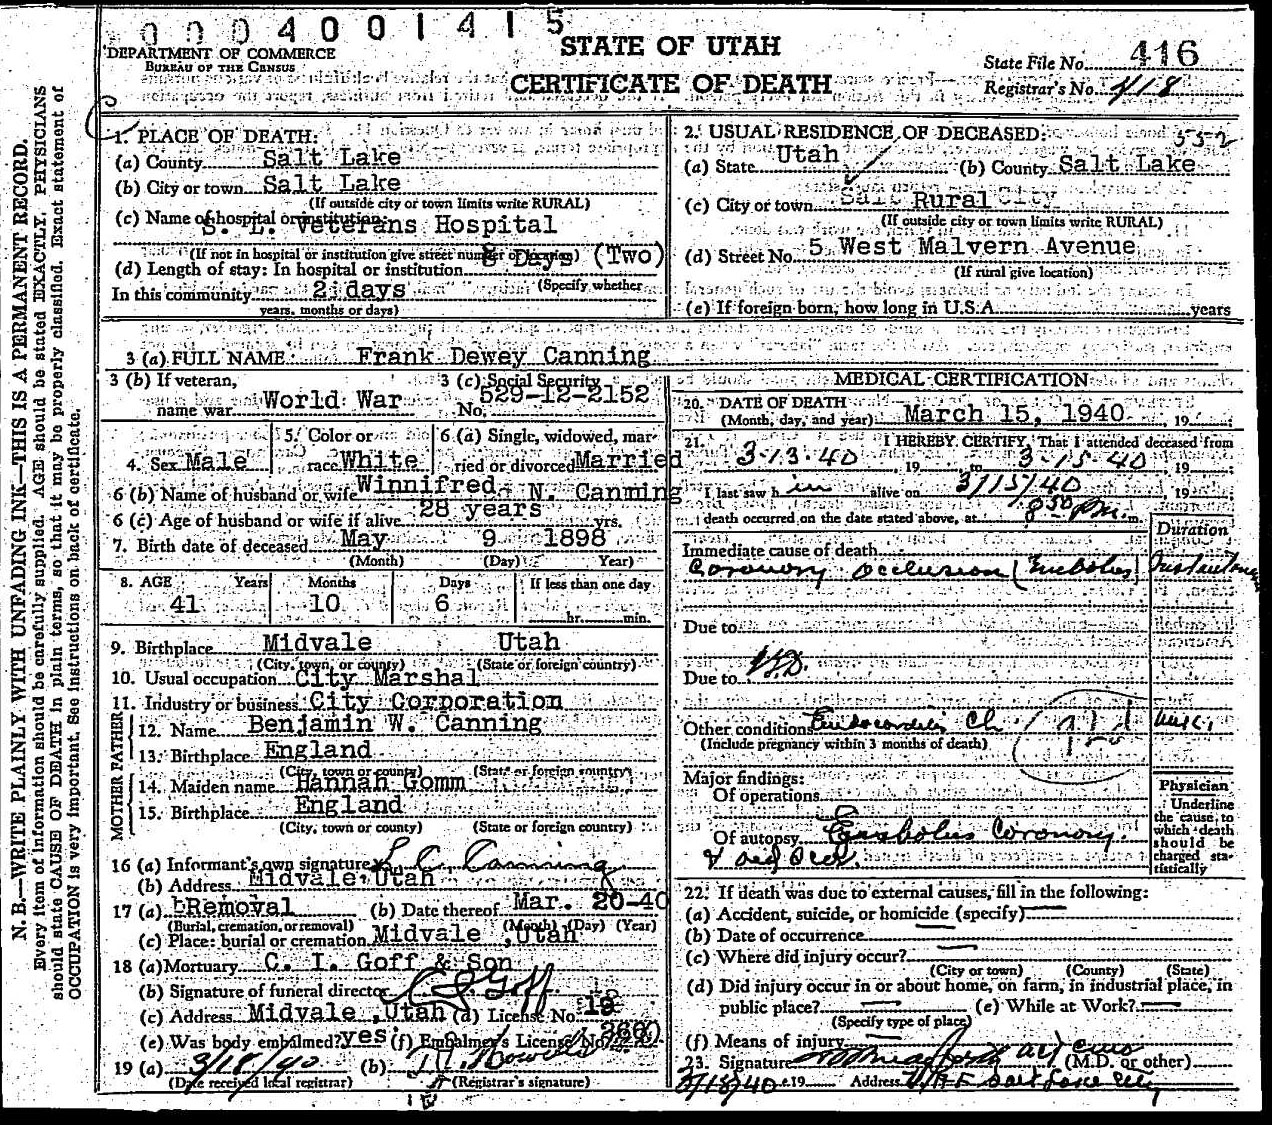 0004001415
DEPARTMENT OF COMMERCE
BUREAU OF THE CENSUS
STATE OF UTAH
CERTIFICATE OF DEATH
State File No. 416
Registrar's No. 418
N. B.—WRITE PLAINLY WITH UNFADING INK—THIS IS A PERMANENT RECORD.
Every item of information should be carefully supplied. AGE should be stated EXACTLY. PHYSICIANS
should state CAUSE OF DEATH in plain terms, so that it may be properly classified. Exact statement of
OCCUPATION is very important. See instructions on back of certificate.
1. PLACE OF DEATH:
(a) County Salt Lake
(b) City or town Salt Lake
(If outside city or town limits write RURAL)
(c) Name of hospital or institution:
S. L. Veterans Hospital
(If not in hospital or institution give street number or location)
(d) Length of stay: In hospital or institution 8 Days (Two)
(Specify whether
In this community 2 days
years, months or days)
2. USUAL RESIDENCE OF DECEASED: 552
(a) State Utah (b) County Salt Lake
(c) City or town Salt Rural City
(If outside city or town limits write RURAL)
(d) Street No. 5 West Malvern Avenue
(If rural give location)
(e) If foreign born, how long in U.S.A. years
3 (a) FULL NAME: Frank Dewey Canning
3 (b) If veteran,
name war World War
3 (c) Social Security
No. 529-12-2152
4. Sex Male
5. Color or
race White
6 (a) Single, widowed, mar-
ried or divorced Married
6 (b) Name of husband or wife Winnifred N. Canning
6 (c) Age of husband or wife if alive 28 years yrs.
7. Birth date of deceased May 9 1898
(Month) (Day) Year)
8. AGE Years Months Days If less than one day
41 10 6 hr. min.
9. Birthplace Midvale Utah
(City, town, or county) (State or foreign country)
10. Usual occupation City Marshal
11. Industry or business City Corporation
FATHER
12. Name Benjamin W. Canning
13. Birthplace England
(City, town or county) (State or foreign country)
MOTHER
14. Maiden name Hannah Gomm
15. Birthplace England
(City, town or county) (State or foreign country)
16 (a) Informant's own signature L. C. Canning
(b) Address Midvale Utah
17 (a) Removal (b) Date thereof Mar. 20-40
(Burial, cremation, or removal) (Month) (Day) (Year)
(c) Place: burial or cremation Midvale ,Utah
18 (a) Mortuary C. I. Goff & Son
(b) Signature of funeral director C I Goff
(c) Address Midvale ,Utah (d) License No. 18
(e) Was body embalmed? yes (f) Embalmer's License No. 260
19 (a) 3/18/40 (b)
(Date received local registrar) (Registrar's signature)
MEDICAL CERTIFICATION
20. DATE OF DEATH
(Month, day, and year) March 15, 1940, 19
21. I HEREBY CERTIFY, That I attended deceased from
3-13-40, 19 to 3-15-40, 19
I last saw him alive on 3/15/40, 19
death occurred on the date stated above, at 8:50 P.m. m.
Duration
Immediate cause of death
Coronary Occlusion (Embolus) Instantaneous
Due to
Due to
Other conditions Endocarditis Ch.
(Include pregnancy within 3 months of death)
Major findings:
Of operations
Of autopsy Embolus Coronary.
Physician
Underline
the cause to
which death
should be
charged sta-
tistically
22. If death was due to external causes, fill in the following:
(a) Accident, suicide, or homicide (specify)
(b) Date of occurrence
(c) Where did injury occur?
(City or town) (County) (State)
(d) Did injury occur in or about home, on farm, in industrial place, in
public place? (e) While at Work?
(Specify type of place)
(f) Means of injury
23. Signature (M.D. or other)
3/18/40 19 Address V.A.F. Salt Lake City